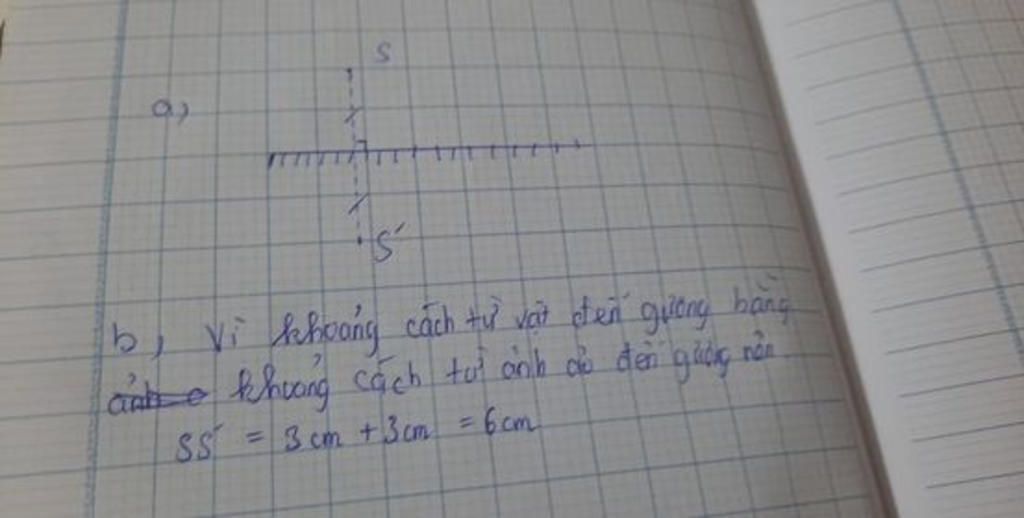 S
a,
S'
b, Vì khoảng cách từ vật đến gương bằng
ảnh khoảng cách từ ảnh ảo đến gương nên
SS' = 3cm + 3cm = 6cm